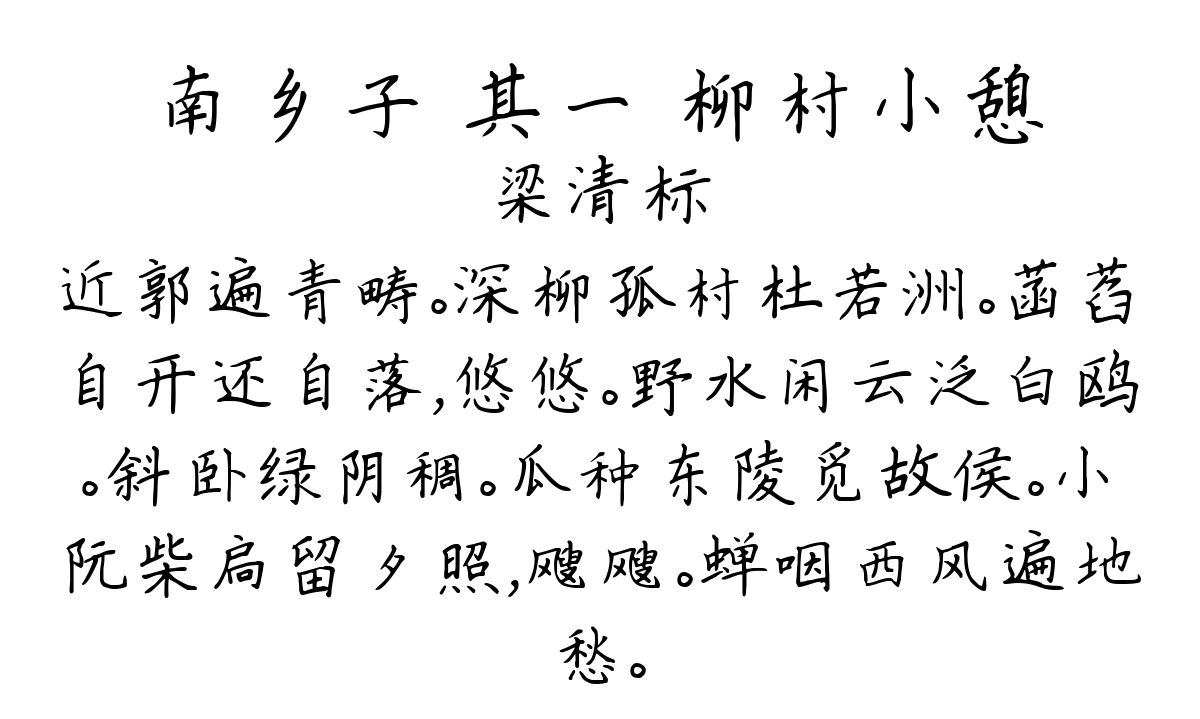 南乡子 其一 柳村小憩
梁清标
近郭遍青畴。深柳孤村杜若洲。菡萏
自开还自落,悠悠。野水闲云泛白鸥
。斜卧绿阴稠。瓜种东陵觅故侯。小
阮柴扃留夕照,飕飕。蝉咽西风遍地
愁。